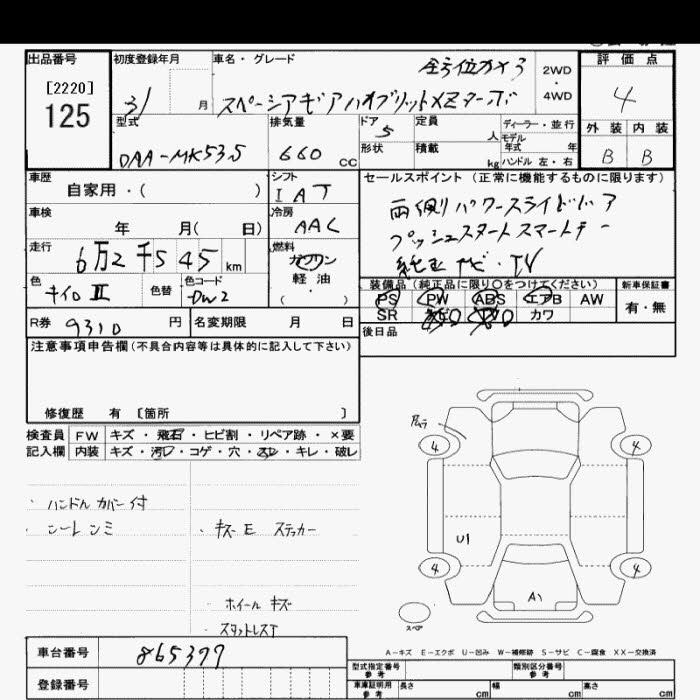 出品番号 初度登録年月 車名・グレード 2WD ・ 4WD 評価点
[2220]
125
31 月 スペーシアギアハイブリットXZターボ 4
型式 排気量 ドア 5 定員 人 ディーラー・並行 外装 内装
モデル年式 年
DAA-MK53S 660 CC 形状 積載 kg ハンドル 左・右 B B
車歴 シフト セールスポイント(正常に機能するものに限ります)
自家用・( ) IAT 両側パワースライドドア
車検 冷房
年 月( 日) AAC プッシュスタートスマートキー
走行 燃料
6万2千545km ガソリン 純正ナビ・TV
軽油
色 色替 色コード ・( ) 装備品(純正品に限り○をつけてください) 新車保証書
DW2 PS PW ABS エアB AW 有・無
R券 9310 円 名変期限 月 日 SR ナビ カワ
後日品
注意事項申告欄(不具合内容等は具体的に記入して下さい)
修復歴 有 [箇所 ]
検査員 FW キズ・飛石・ヒビ割・リペア跡・×要
記入欄 内装 キズ・汚れ・コゲ・穴・スレ・キレ・破レ
4 4
・ハンドルカバー付
・シートシミ ・キズE ステッカー
U1
4 4
A1
・ホイールキズ
スペア
・スタットレスT
A-キズ E-エクボ U-凹み W-補修跡 S-サビ C-腐食 XX-交換済
車台番号 865377
型式指定番号 参考 類別区分番号 参考
登録番号 車庫証明用 参考 長さ cm 幅 cm 高さ cm